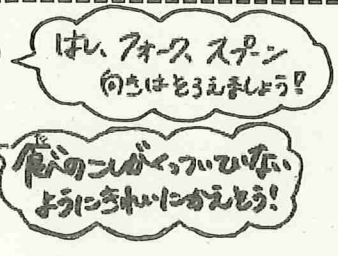 はし、フォーク、スプーン
向きはそろえましょう!
食べのこしがくっついていない
ようにきれいにかえそう!